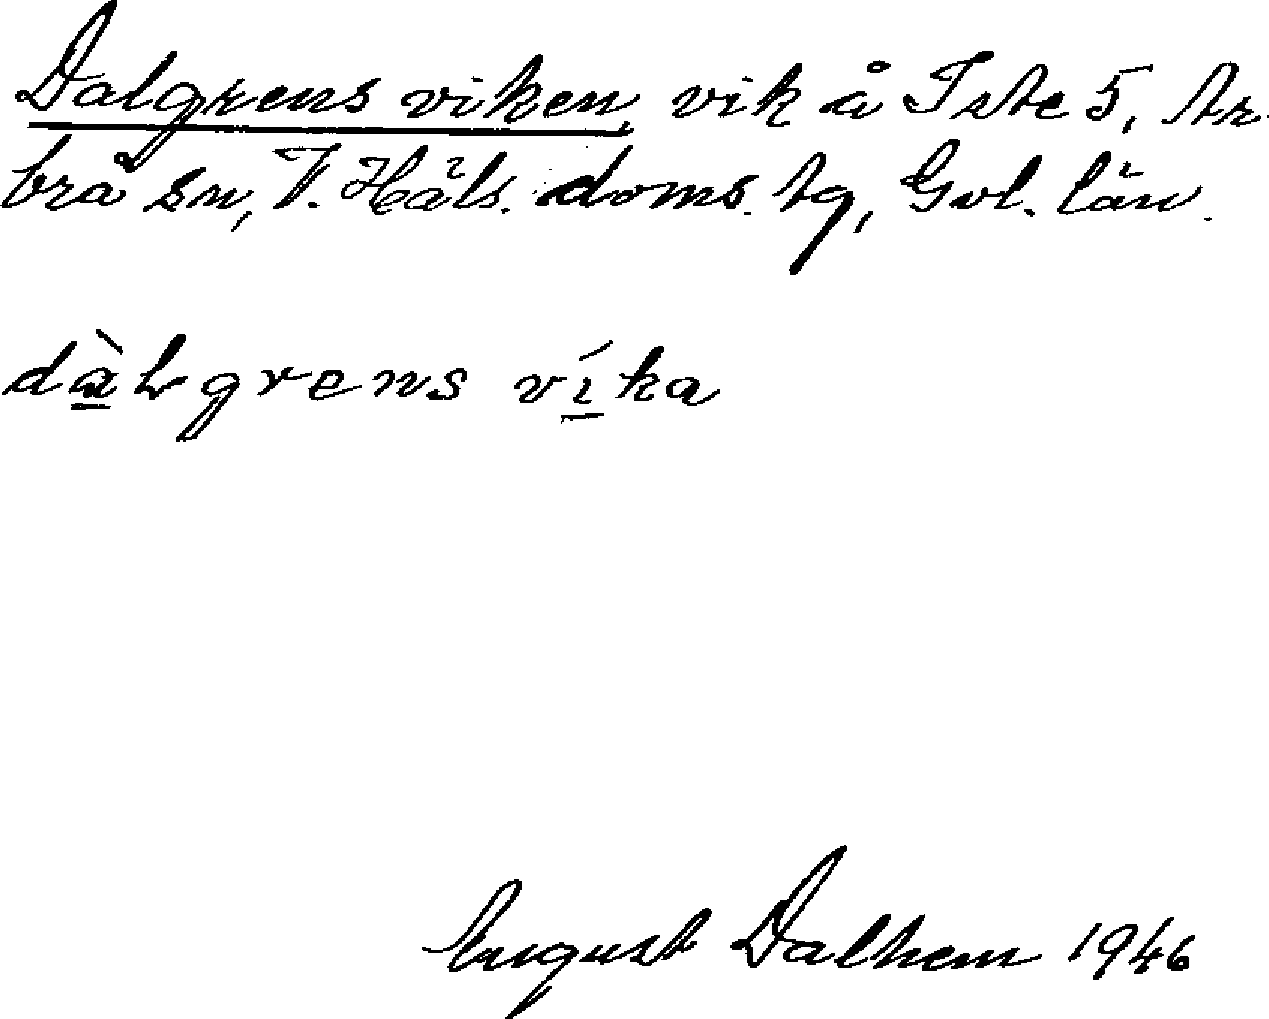 Dalgrens viken, vik å Iste 5, Ar-
brå sn, V. Häls. doms. tg, Gvl. län.
dàLgrens víka
August Dalhem 1946